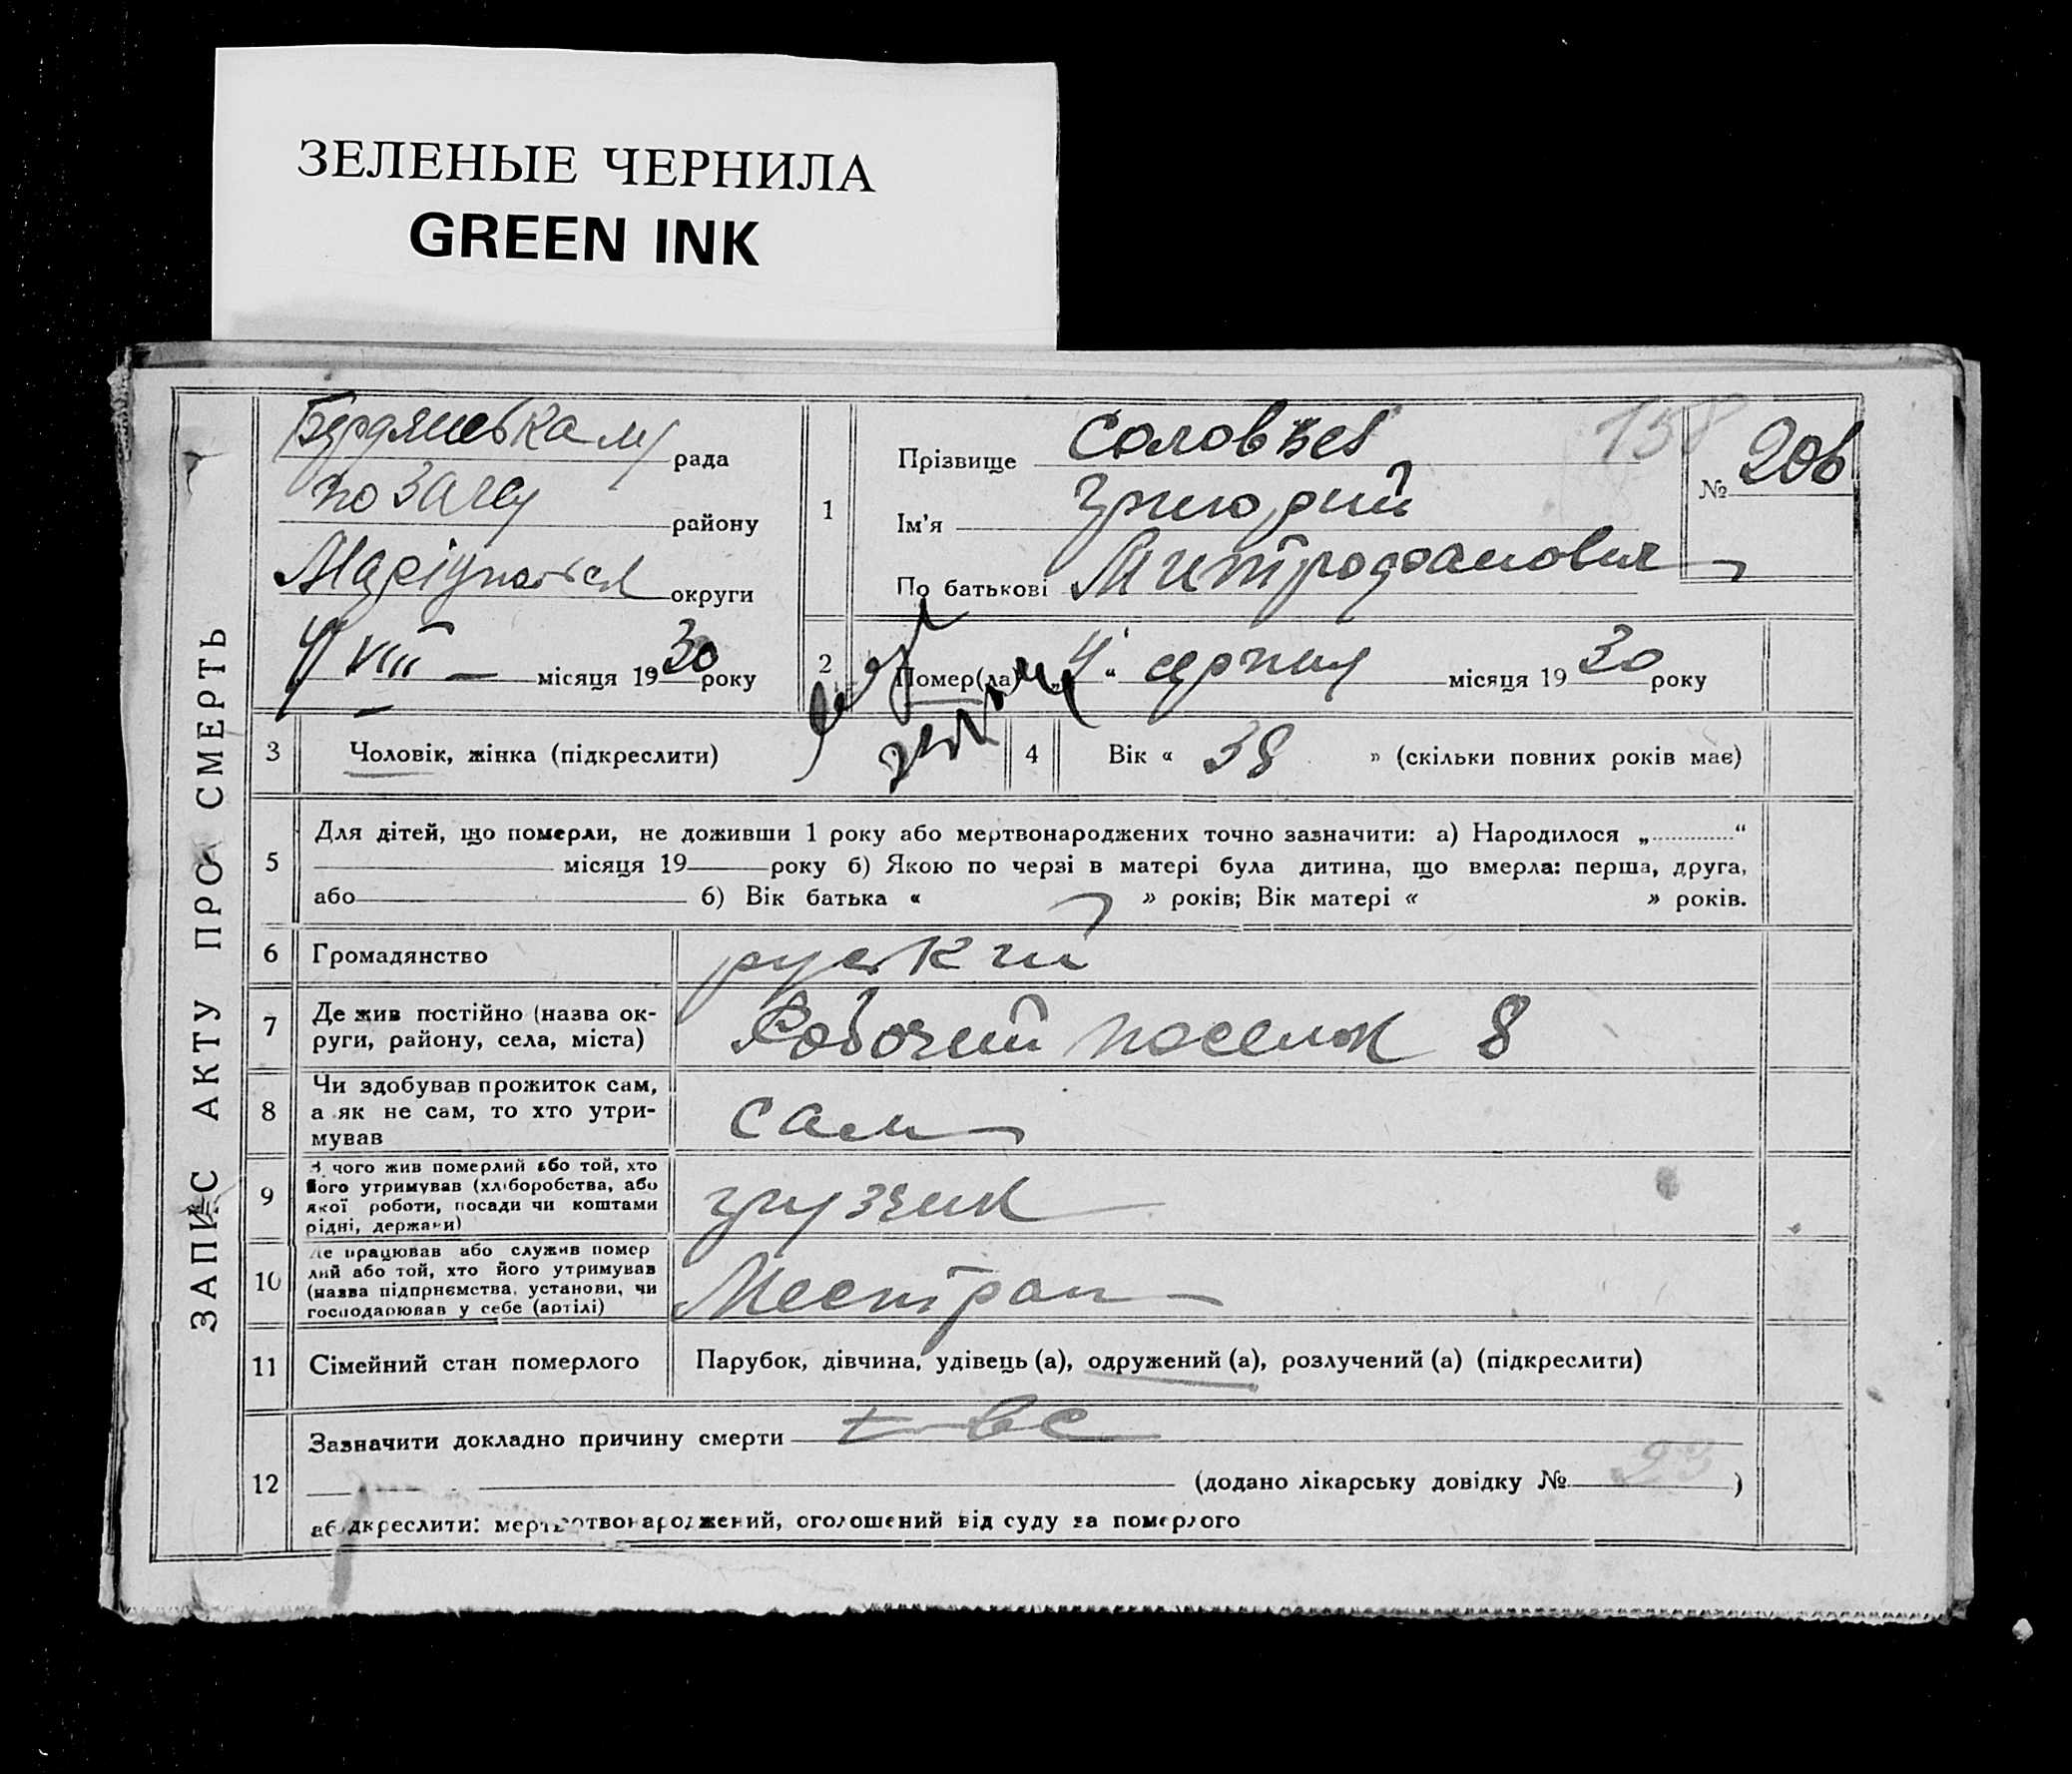 ЗЕЛЕНЫЕ ЧЕРНИЛА
GREEN INK
ЗАПИС АКТУ ПРО СМЕРТЬ
Бердянська м/ рада
по ЗАГСу району
Маріупольськ округи
4/VIII — місяця 1930 року
1
Прізвище Соловьев
Ім'я Григорий
По батькові Митрофанович
158
№ 206
2 Помер(ла) „4“ серпня місяця 1930 року
3 Чоловік, жінка (підкреслити)
4 Вік « 38 » (скільки повних років має)
5 Для дітей, що померли, не доживши 1 року або мертвонароджених точно зазначити: а) Народилося „ “
місяця 19 року б) Якою по черзі в матері була дитина, що вмерла: перша, друга,
або б) Вік батька « » років; Вік матері « » років.
6 Громадянство руский
7 Де жив постійно (назва ок-
руги, району, села, міста) Робочий поселок 8
8 Чи здобував прожиток сам,
а як не сам, то хто утри-
мував сам
9 З чого жив померлий або той, хто
його утримував (хліборобства, або
якої роботи, посади чи коштами
рідні, держави) грузчик
10 Де працював або служив помер
лий або той, хто його утримував
(назва підприємства, установи, чи
господарював у себе (артілі) Местран
11 Сімейний стан померлого Парубок, дівчина, удівець (а), одружений (а), розлучений (а) (підкреслити)
12 Зазначити докладно причину смерти т-вс
(додано лікарську довідку № 23 )
дкреслити: мертвонароджений, оголошений від суду за померлого